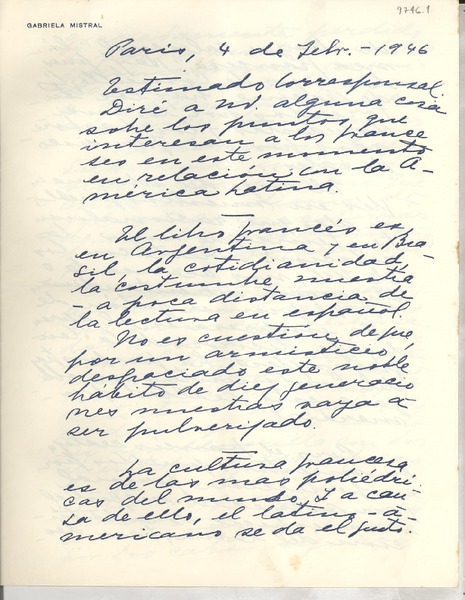 9746.1
GABRIELA MISTRAL
Paris, 4 de Febr. - 1946
Estimado Corresponsal.
Diré a Ud. alguna cosa
sobre los puntos que
interesan a los france
ses en este momento
en relacion con la A-
mérica Latina.
El libro francés es
en Argentina y en Bra-
sil la cotidianidad,
la costumbre nuestra
- a poca distancia de
la lectura en español.
No es cuestion de que
por un armisticio
desgraciado este noble
hábito de diez generacio
nes nuestras vaya a
ser pulverizado.
La cultura francesa
es de las mas poliédri
cas del mundo. Y a cau-
sa de ello, el latino-a-
mericano se da el gusto.